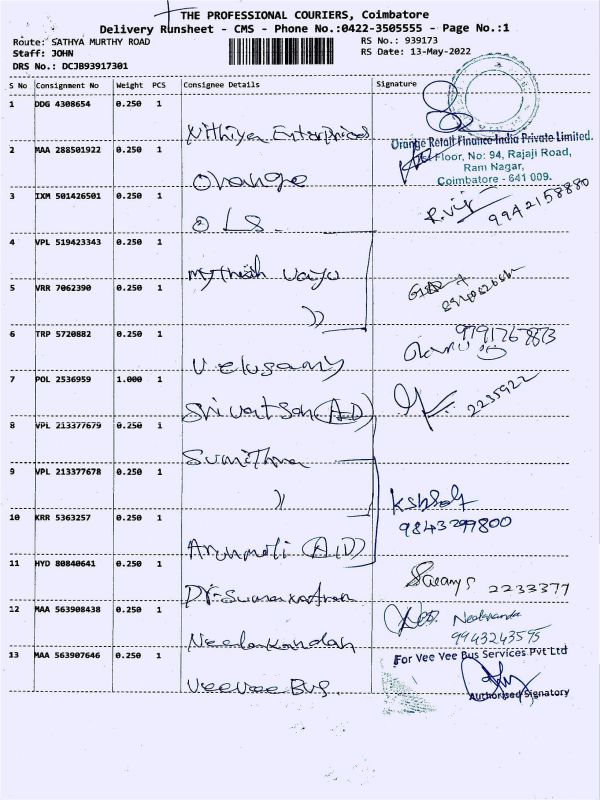 THE PROFESSIONAL COURIERS, Coimbatore
Delivery Runsheet - CMS - Phone No.:0422-3505555 - Page No.:1
Route: SATHYA MURTHY ROAD
Staff: JOHN
DRS No.: DCJB93917301
RS No.: 939173
RS Date: 13-May-2022
S No Consignment No Weight PCS Consignee Details Signature
1 DDG 4308654 0.250 1 Nithiya Enterprises
Orange Retail Finance India Private Limited.
Floor, No: 94, Rajaji Road,
Ram Nagar,
Coimbatore - 641 009.
2 MAA 288501922 0.250 1 Orange
3 IXM 501426501 0.250 1 OLS R. 9942158880
4 VPL 519423343 0.250 1
5 VRR 7062390 0.250 1 ))
6 TRP 5720882 0.250 1 Velusamy 9791767873
7 POL 2536959 1.000 1 Srivatsan (A.D) 2235922
8 VPL 213377679 0.250 1 Sumithra
9 VPL 213377678 0.250 1 ))
10 KRR 5363257 0.250 1 Arunmoli (A.D) 9843299800
11 HYD 80840641 0.250 1 2233377
12 MAA 563908438 0.250 1 Neelakandan 9943243595
13 MAA 563907646 0.250 1 VeeVee Bus.
For Vee Vee Bus Services Pvt Ltd
Authorised Signatory